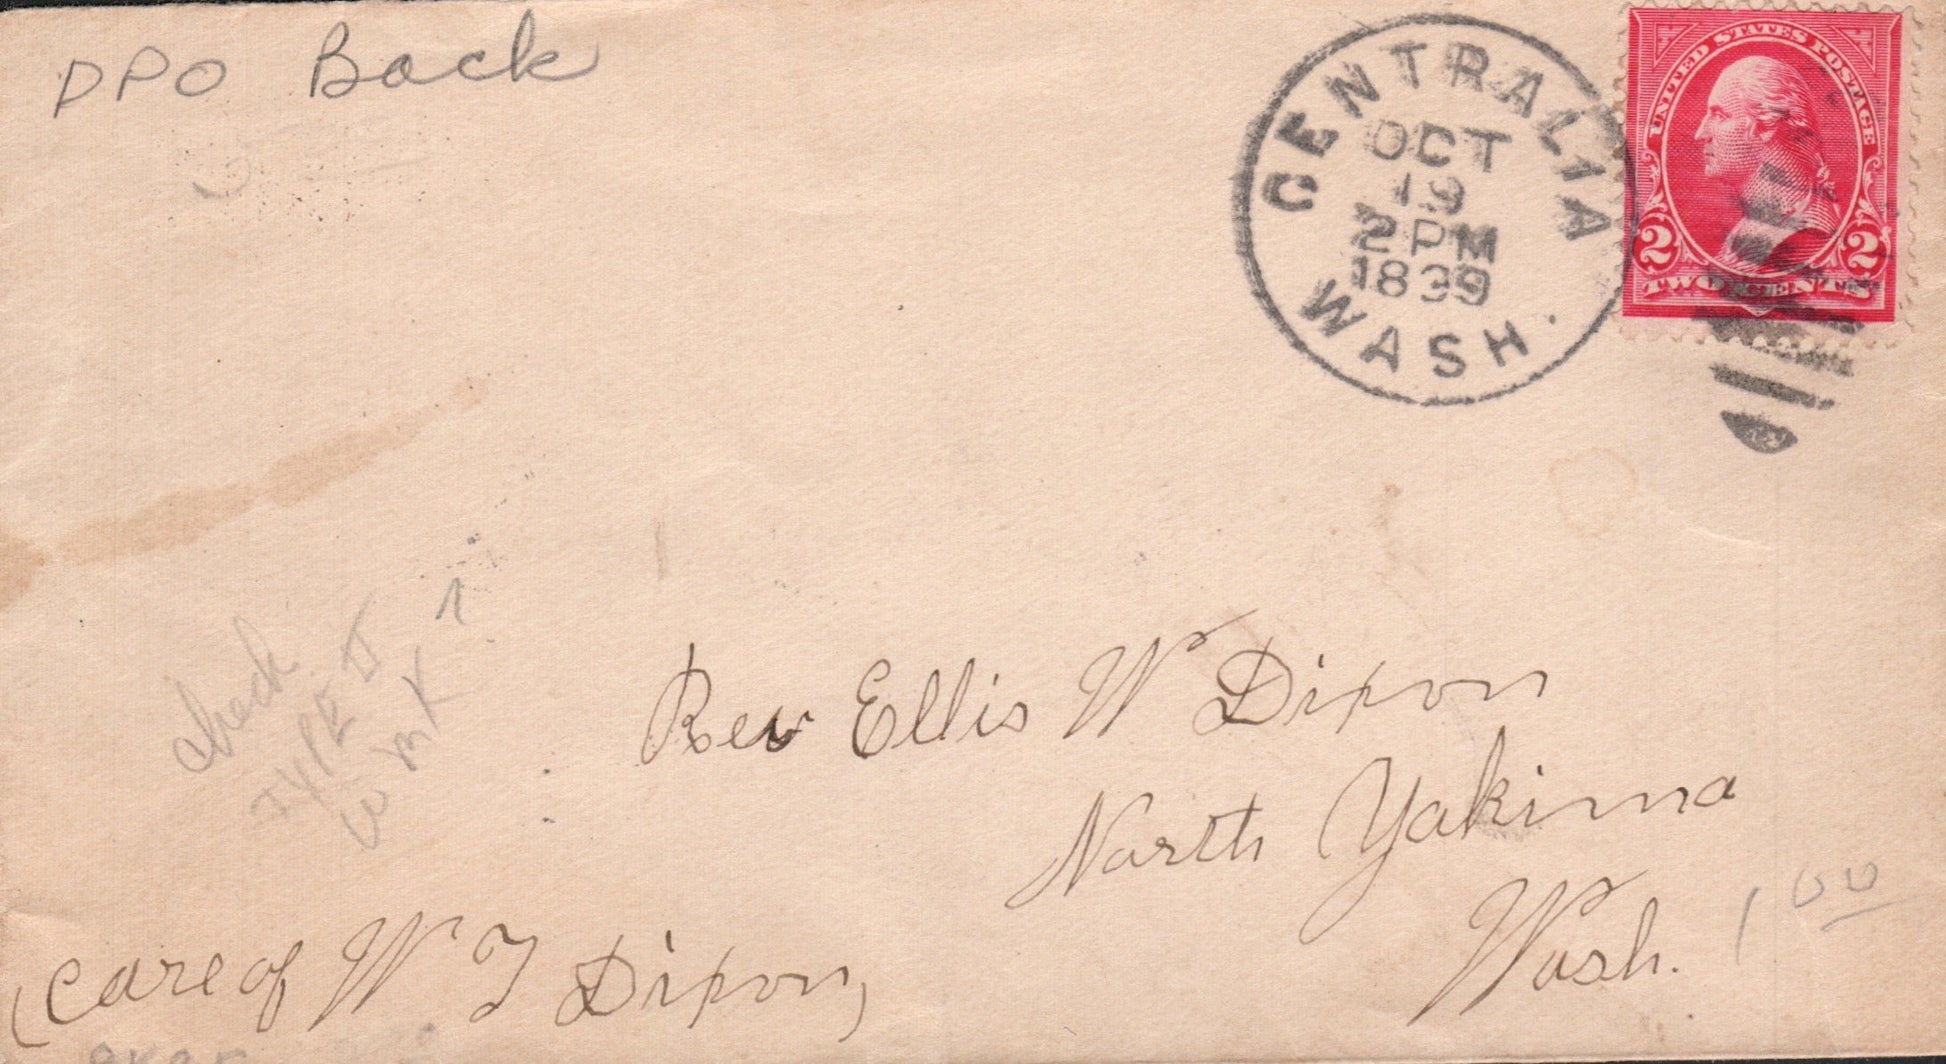 DPO Back
CENTRALIA
OCT
19
2 PM
1899
WASH.
UNITED STATES POSTAGE
2 2
TWO CENTS
check
TYPE II
WMK
Rev Ellis W Dixon
North Yakima
Wash.
1 00
(Care of W T Dixon)
over